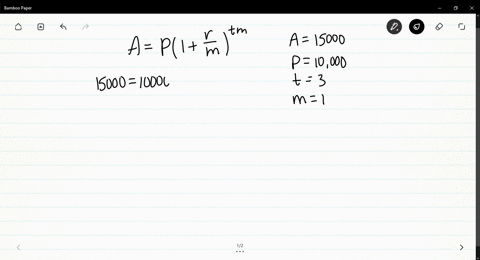 Bamboo Paper
A = P(1 + r/m)^tm
A = 15000
P = 10,000
t = 3
m = 1
15000 = 1000(
1/2